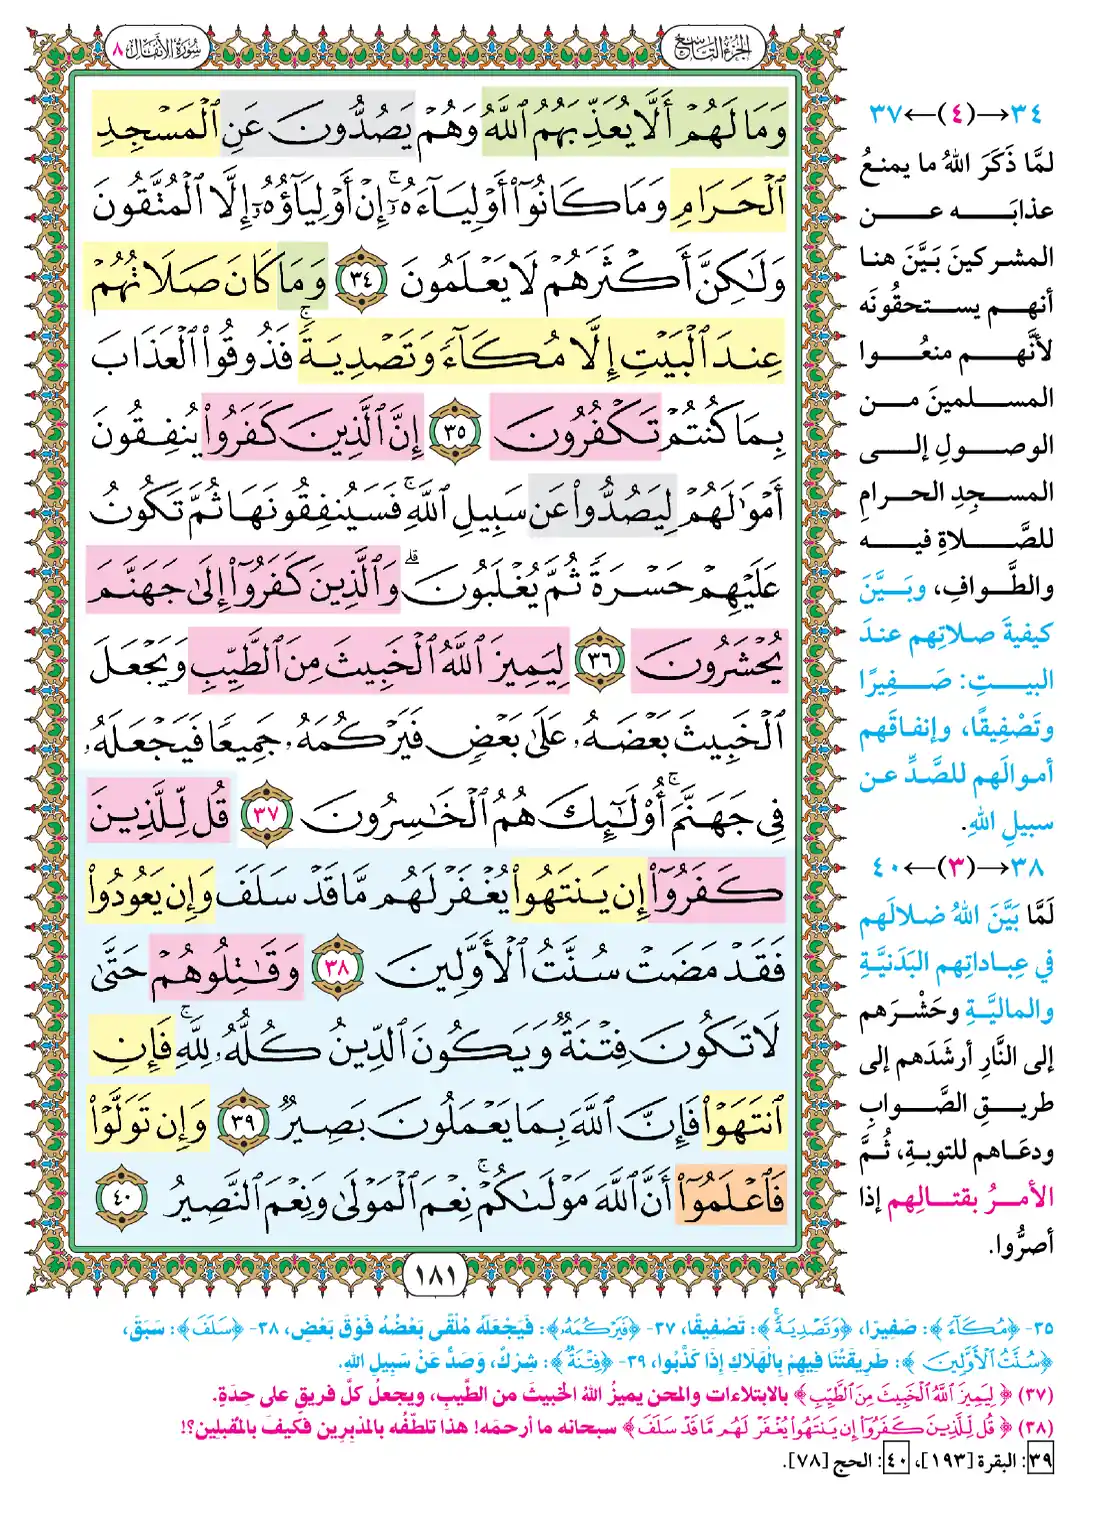 الجزء التاسع
سورة الأنفال ٨
وَمَا لَهُمۡ أَلَّا يُعَذِّبَهُمُ ٱللَّهُ وَهُمۡ يَصُدُّونَ عَنِ ٱلۡمَسۡجِدِ
ٱلۡحَرَامِ وَمَا كَانُوٓاْ أَوۡلِيَآءَهُۥٓۚ إِنۡ أَوۡلِيَآؤُهُۥٓ إِلَّا ٱلۡمُتَّقُونَ
وَلَٰكِنَّ أَكۡثَرَهُمۡ لَا يَعۡلَمُونَ ٣٤ وَمَا كَانَ صَلَاتُهُمۡ
عِندَ ٱلۡبَيۡتِ إِلَّا مُكَآءٗ وَتَصۡدِيَةٗۚ فَذُوقُواْ ٱلۡعَذَابَ
بِمَا كُنتُمۡ تَكۡفُرُونَ ٣٥ إِنَّ ٱلَّذِينَ كَفَرُواْ يُنفِقُونَ
أَمۡوَٰلَهُمۡ لِيَصُدُّواْ عَن سَبِيلِ ٱللَّهِۚ فَسَيُنفِقُونَهَا ثُمَّ تَكُونُ
عَلَيۡهِمۡ حَسۡرَةٗ ثُمَّ يُغۡلَبُونَۗ وَٱلَّذِينَ كَفَرُوٓاْ إِلَىٰ جَهَنَّمَ
يُحۡشَرُونَ ٣٦ لِيَمِيزَ ٱللَّهُ ٱلۡخَبِيثَ مِنَ ٱلطَّيِّبِ وَيَجۡعَلَ
ٱلۡخَبِيثَ بَعۡضَهُۥ عَلَىٰ بَعۡضٖ فَيَرۡكُمَهُۥ جَمِيعٗا فَيَجۡعَلَهُۥ
فِي جَهَنَّمَۚ أُوْلَٰٓئِكَ هُمُ ٱلۡخَٰسِرُونَ ٣٧ قُل لِّلَّذِينَ
كَفَرُوٓاْ إِن يَنتَهُواْ يُغۡفَرۡ لَهُم مَّا قَدۡ سَلَفَ وَإِن يَعُودُواْ
فَقَدۡ مَضَتۡ سُنَّتُ ٱلۡأَوَّلِينَ ٣٨ وَقَٰتِلُوهُمۡ حَتَّىٰ
لَا تَكُونَ فِتۡنَةٞ وَيَكُونَ ٱلدِّينُ كُلُّهُۥ لِلَّهِۚ فَإِنِ
ٱنتَهَوۡاْ فَإِنَّ ٱللَّهَ بِمَا يَعۡمَلُونَ بَصِيرٞ ٣٩ وَإِن تَوَلَّوۡاْ
فَٱعۡلَمُوٓاْ أَنَّ ٱللَّهَ مَوۡلَىٰكُمۡۚ نِعۡمَ ٱلۡمَوۡلَىٰ وَنِعۡمَ ٱلنَّصِيرُ ٤٠
١٨١
٣٤→(٤)←٣٧
لمَّا ذَكَرَ اللهُ ما يمنعُ
عذابَه عن
المشركينَ بَيَّنَ هنا
أنهم يستحقُونَه
لأنَّهم منعُوا
المسلمينَ من
الوصولِ إلى
المسجدِ الحرامِ
للصَّلاةِ فيه
والطَّوافِ، وبَيَّنَ
كيفيةَ صلاتِهم عندَ
البيتِ: صَفِيرًا
وتَصْفِيقًا، وإنفاقَهم
أموالَهم للصَّدِّ عن
سبيلِ اللهِ.
٣٨→(٣)←٤٠
لَمَّا بَيَّنَ اللهُ ضلالَهم
في عِباداتِهم البَدَنيَّةِ
والماليَّةِ وحَشْرَهم
إلى النَّارِ أرشَدَهم إلى
طريقِ الصَّوابِ
ودعَاهم للتوبةِ، ثُمَّ
الأمرُ بقتالِهم إذا
أصرُّوا.
٣٥- ﴿مُكَآءٗ﴾: صَفِيرًا، ﴿وَتَصۡدِيَةٗۚ﴾: تَصْفِيقًا، ٣٧- ﴿فَيَرۡكُمَهُۥ﴾: فَيَجْعَلَهُ مُلْقًى بَعْضُهُ فَوْقَ بَعْضٍ، ٣٨- ﴿سَلَفَ﴾: سَبَقَ،
﴿سُنَّتُ ٱلۡأَوَّلِينَ﴾: طَرِيقَتُنَا فِيهِمْ بِالْهَلَاكِ إِذَا كَذَّبُوا، ٣٩- ﴿فِتۡنَةٞ﴾: شِرْكٌ، وَصَدٌّ عَنْ سَبِيلِ اللهِ.
(٣٧) ﴿لِيَمِيزَ ٱللَّهُ ٱلۡخَبِيثَ مِنَ ٱلطَّيِّبِ﴾ بالابتلاءات والمحن يميزُ اللهُ الخبيثَ من الطَّيبِ، ويجعلُ كلَّ فريقٍ على حِدَةٍ.
(٣٨) ﴿قُل لِّلَّذِينَ كَفَرُوٓاْ إِن يَنتَهُواْ يُغۡفَرۡ لَهُم مَّا قَدۡ سَلَفَ﴾ سبحانه ما أرحمَه! هذا تلطُّفُه بالمدْبِرِين فكيفَ بالمقْبِلِين؟!
٣٩: البقرة [١٩٣]، ٤٠: الحج [٧٨].